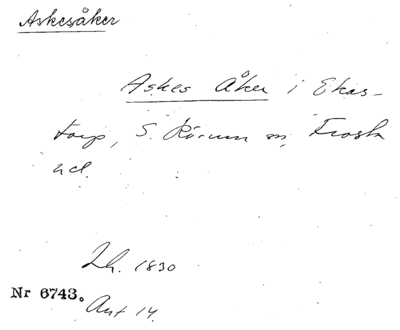 Askesåker
Askes Åker i Ekas-
torp, S. Rörum sn, Frosta
hd.
Lh. 1830
Nr 6743.
Akt 14